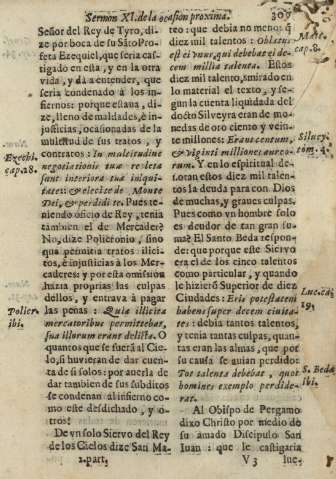 Sermon XI. de la ocasion proxima. 309
Señor del Rey de Tyro, di-
ze por boca de su Sãto Pro-
feta Ezequiel, que seria cas-
tigado en esta, y en la otra
vida, y dà a entender, que
seria condenado à los in-
fiernos: porque estaua, di-
ze, lleno de maldades, è in-
justicias, ocasionadas de la
multitud de sus tratos, y
contratos: In multitudine
negotiationis tuæ repleta
sunt interiora tua iniqui-
tate: & eieci te de Monte
Dei, & perdidi te. Pues te-
niendo oficio de Rey, tenia
tambien el de Mercader?
No, dize Policronio, sino
que permitia tratos illici-
tos, è injusticias à los Mer-
caderes: y por esta omission
hazia proprias las culpas
dellos, y entrava à pagar
las penas: Quia illicita
mercatoribus permittebat,
sua illorum erant delicta. O
quantos que se fuerã al Cie-
lo, si huvieran de dar cuen-
ta de si solos: por averla de
dar tambien de sus subditos
se condenan al infierno co-
mo este desdichado, y o-
tros!
De vn solo Siervo del Rey
de los Cielos dize San Ma-
2. part.
Ezechi.
cap. 28.
Policr.
ibi.
teo: que debia no menos q̃
diez mil talentos: Oblatus
est ei vnus, qui debebat ei de-
cem millia talenta. Estos
diez mil talentos, mirado en
lo material el texto, y se-
gun la cuenta liquidada del
docto Silveyra eran de mo-
nedas de oro ciento y vein-
te millones: Erant centum,
& viginti milliones aureo-
rum. Y en lo espiritual de-
notan estos diez mil talen-
tos la deuda para con Dios
de muchas, y graves culpas.
Pues como vn hombre solo
es deudor de tan gran su-
ma? El Santo Beda respon-
de: que porque este Siervo
era el de los cinco talentos
como particular, y quando
le hizierõ Superior de diez
Ciudades: Eris potestatem
habens super decem ciuita-
tes: debia tantos talentos,
y tenia tantas culpas, quan-
tas eran las almas, que por
su causa se auian perdido:
Tot talenta debebat, quot
homines exemplo perdide-
rat.
Al Obispo de Pergamo
dixo Christo por medio de
su amado Discipulo San
Juan: que le castigaria
V 3 lue-
Mate.
cap. 8.
Silvey
tom. 4.
Luc. cap.
19.
S. Beda
ibi.